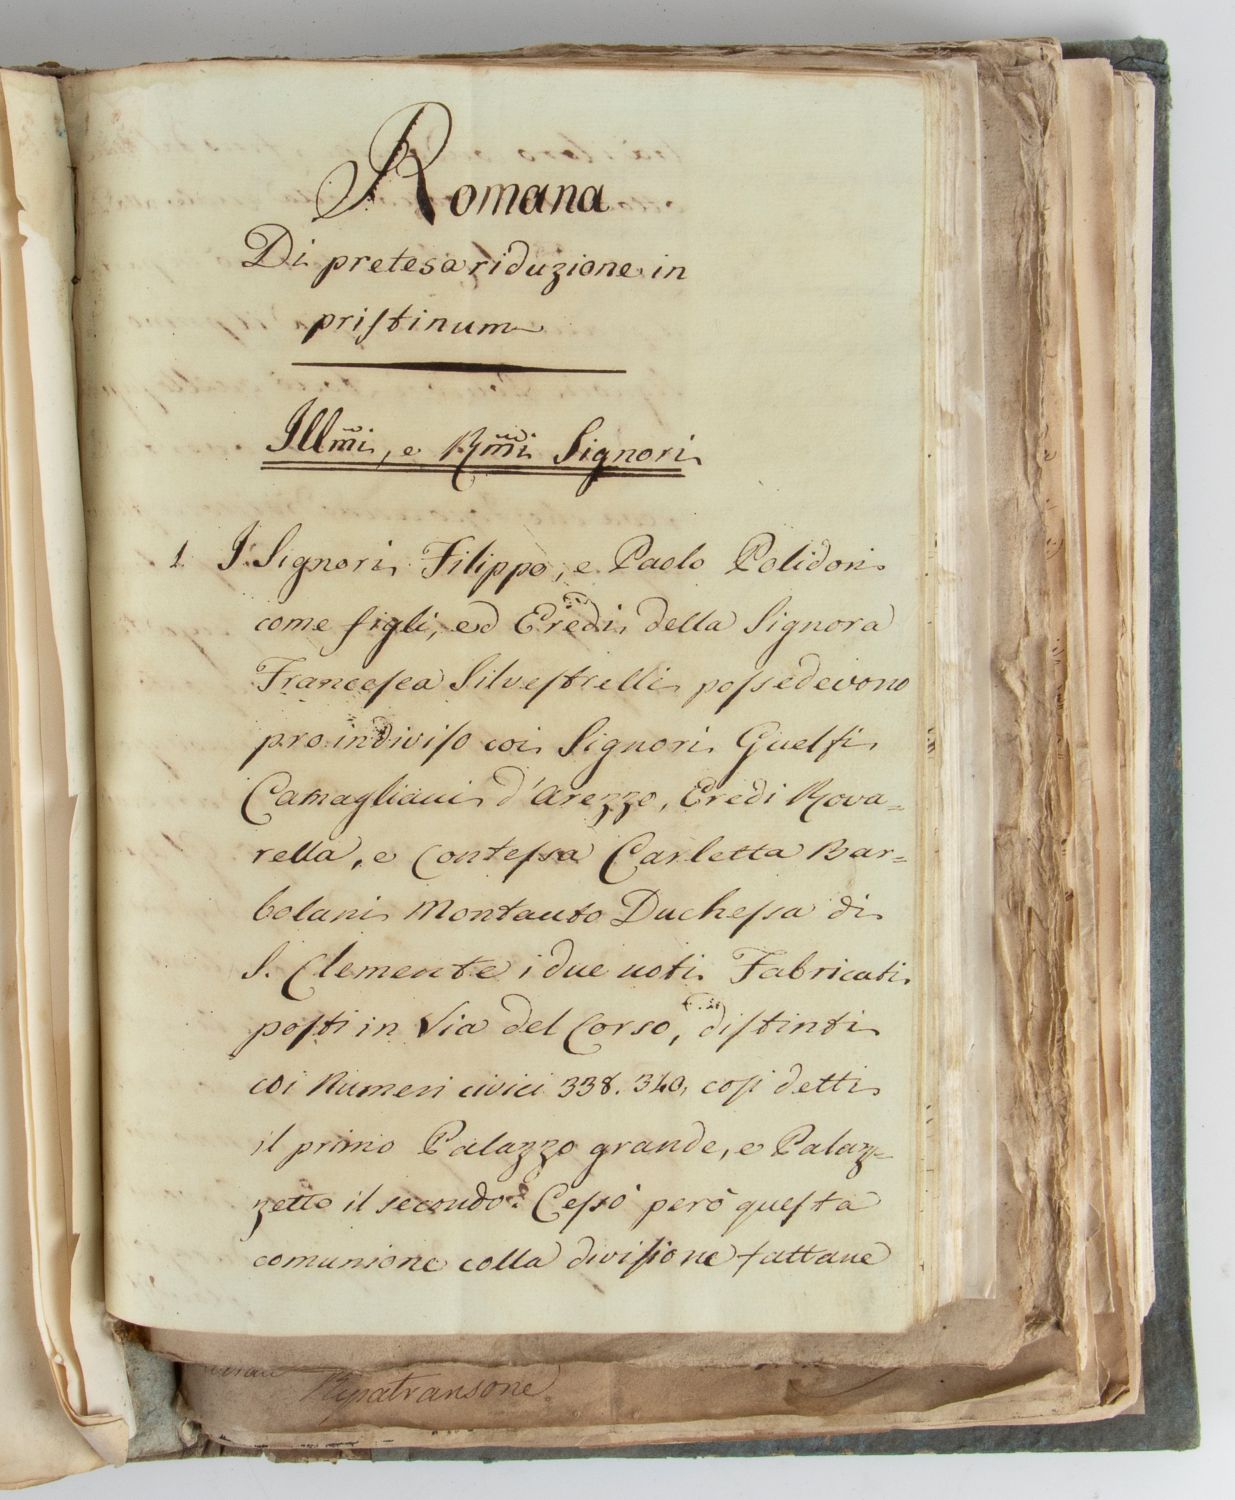 Romana
Di pretesa riduzione in
pristinum
Illmi, e Rmi Signori
1. I Signori Filippo, e Paolo Polidori
come figli, ed Eredi della Signora
Francesca Silvestrelli possedevono
pro indiviso coi Signori Guelfi
Camagliani d'Arezzo, Eredi Rova=
rella, e Contessa Carletta Bar=
bolani Montauto Duchessa di
S. Clemente i due noti Fabricati
posti in Via del Corso, distinti
coi Numeri civici 338. 340, cosi detti
il primo Palazzo grande, e Palaz=
zetto il secondo. Cessò però questa
comunione colla divisione fattane
Ripatransone